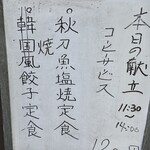 本日の献立
11:30〜14:00
コーヒーサービス
・秋刀魚塩焼定食
・韓国風焼餃子定食